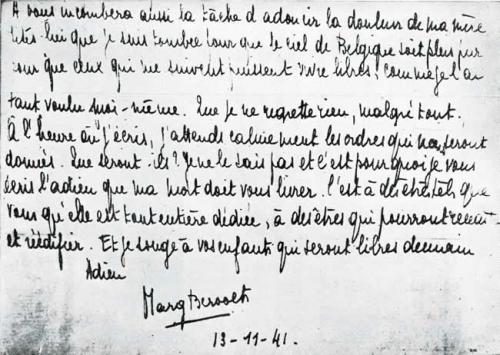 A vous incombera aussi la tâche d'adoucir la douleur de ma mère
Dites-lui que je suis tombée pour que le ciel de Belgique soit plus pur
pour que ceux qui me suivent puissent vivre libres, comme je l'ai
tant voulu moi-même. Que je ne regrette rien, malgré tout.
À l'heure où j'écris, j'attends calmement les ordres qui me seront
donnés. Que seront-ils? Je ne le sais pas et c'est pourquoi je vous
écris l'adieu que ma mort doit vous livrer. C'est à des êtres tels que
vous qu'elle est tout entière dédiée, à des êtres qui pourront
et réédifier. Et je songe à vos enfants qui seront libres demain
Adieu
Marg Bervoets
13-11-41.